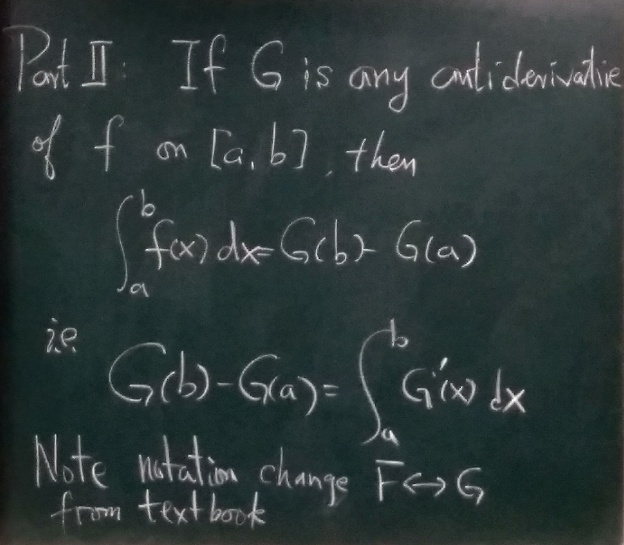 Part II: If G is any antiderivative
of f on [a, b], then
∫_a^b f(x) dx = G(b) - G(a)
i.e
G(b) - G(a) = ∫_a^b G'(x) dx
Note notation change F ↔ G
from textbook